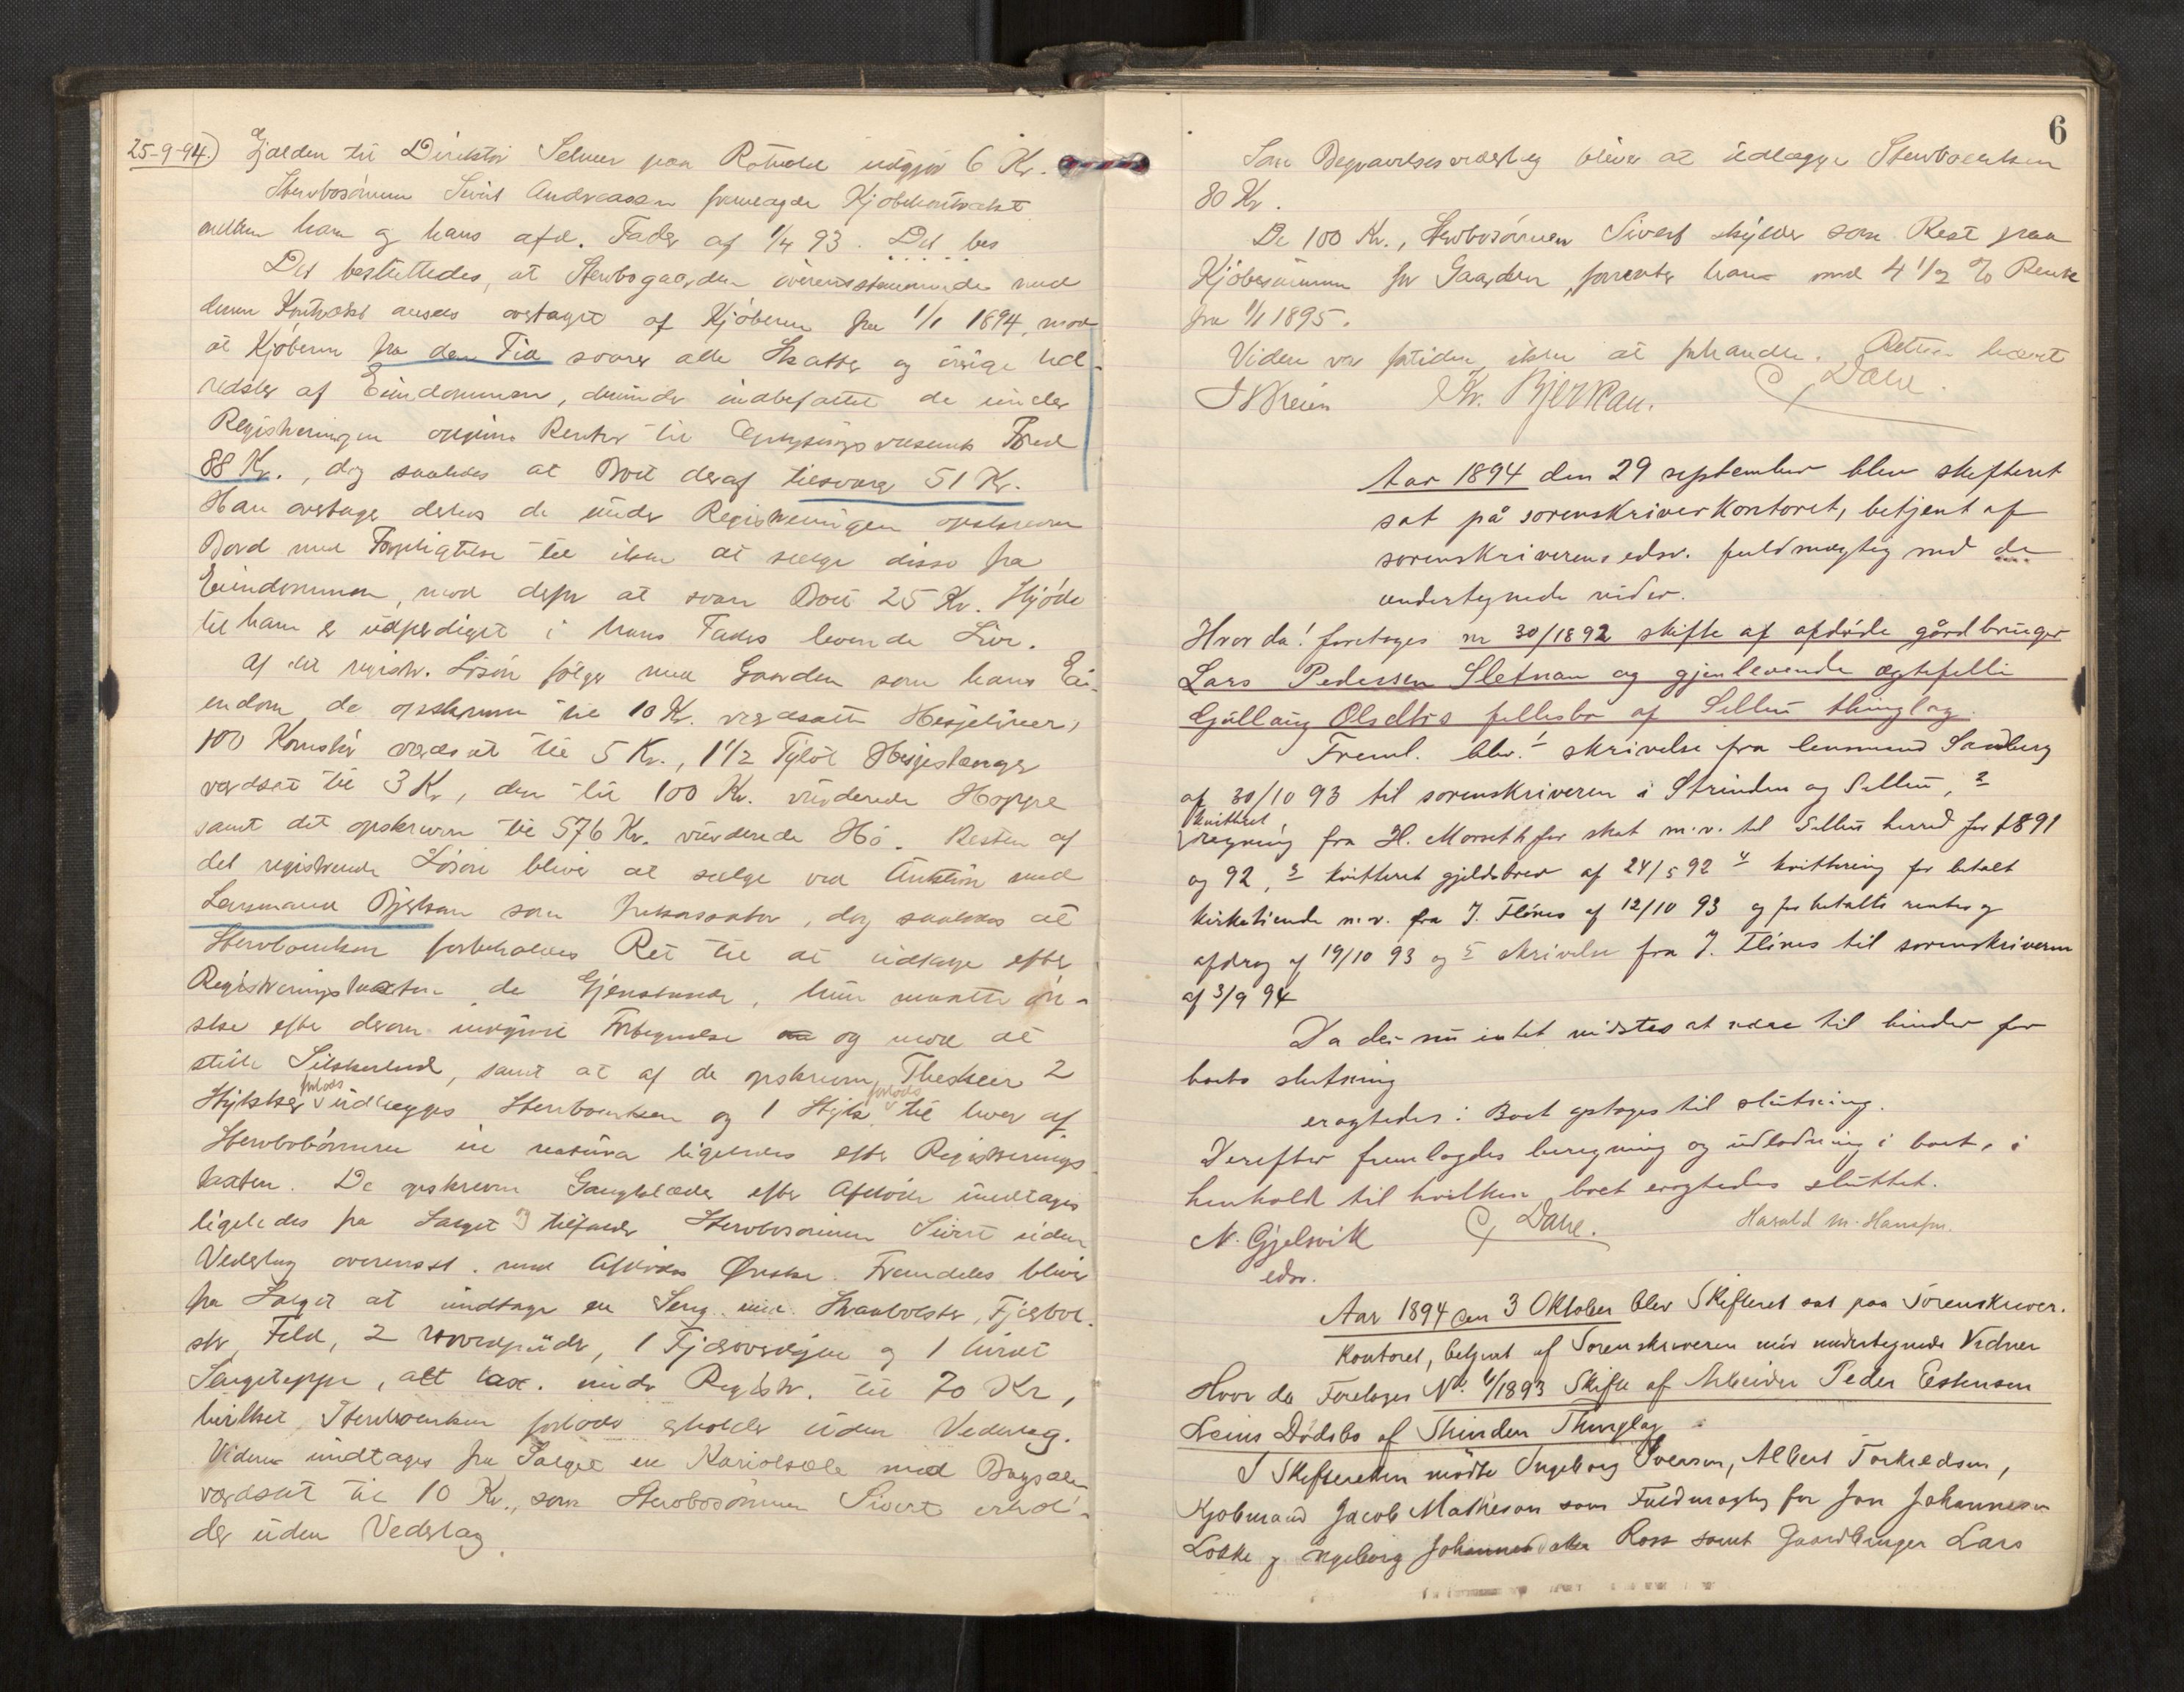 25-9-94.) Gjælden til Direktør Selmer paa Rotvold udgjør 6 Kr.
Stervbosønnen Sivert Andreassen fremlagde Kjøbekontrakt
mellem ham og hans afd. Fader af 1/4 93. Det bes
Det besluttedes, at Stervbogaarden overensstemmende med
denne Kontrakt ansees overtaget af Kjøberen fra 1/1 1894, mod
at Kjøberen fra den Tid svarer alle Skatter og øvrige Ud-
redsler af Eiendommen, derunder indbefattet de under
Registreringen opgivne Renter til Oplysningsvæsenets Fond
88 Kr., dog saaledes at Boet deraf tilsvarer 51 Kr.
Han overtager derhos de under Registreringen opskrevne
Bord med Forpligtelse til ikke at sælge disse fra
Eiendommen, mod derfor at svare Boet 25 Kr. Skjøde
til ham er udfærdiget i hans Faders levende Liv.
Af det registr. Løsøre følger med Gaarden som hans Ei-
endom de opskrevne til 10 Kr. værdsatte Hesjeliner,
100 Kornstør værdsat til 5 Kr., 1 1/2 Tylvt Hesjestænger
værdsat til 3 Kr, den til 100 Kr. vurderede Hoppe
samt det opskrevne til 576 Kr. vurderede Hø. Resten af
det registrerede Løsøre bliver at sælge ved Auktion med
Lensmand Bjerkan som Inkassator, dog saaledes at
Stervboenken forbeholdes Ret til at udtage efter
Registreringstaxten de Gjenstande, hun maatte øn-
ske efter derom indgivet Fortegnelse og mod at
stille Sikkerhed, samt at af de opskrevne Theskeer 2
Stykker forlods udlægges Stervboenken og 1 Stjk. forlods til hver af
Stervbobørnene in natura ligeledes efter Registrerings-
taxten. De opskrevne Gangklæder efter Afdøde undtages
ligeledes fra Salget og tilfalder Stervbosønnen Sivert uden
Vederlag overensst. med Afdødes Ønske. Fremdeles bliver
fra Salget at undtage en Seng med Straabolster, Fjærbol-
ster, Feld, 2 Hovedpuder, 1 og 1 hvidt
Sengeteppe, alt tax. under Registr. til 70 Kr,
hvilket Stervboenken forlods erholder uden Vederlag.
Videre undtages fra Salget en Kariolsæle med Bagsæle
værdsat til 10 Kr., som Stervbosønnen Sivert erhol-
der uden Vederlag.
6
Som Begravelsesvederlag bliver at udlægge Stervboenken
80 Kr.
De 100 Kr., Stervbosønnen Sivert skylder som Rest paa
Kjøbesummen for Gaarden, forrenter han med 4 1/2 % Rente
fra 1/1 1895.
Videre var fortiden ikke at forhandle. Retten hævet
Kr. Bjerkan. C Dahl.
Aar 1894 den 29 september blev skifteret
sat på sorenskriverkontoret, betjent af
sorenskriverens edsv. fuldmægtig med de
undertegnede vidner.
Hvor da! foretoges nr 30/1892 skifte af afdøde gårdbruger
Lars Pedersen Sletnan og gjenlevende ægtefelle
Gjullaug Olsdtrs fellesbo af Selbu thinglag.
Freml. blev: 1 skrivelse fra lensmand Sandberg
af 30/10 93 til sorenskriveren i Strinden og Selbu, 2
kvitteret
regning fra H. Morseth for skat m.v. til Selbu herred for 1891
og 92, 3 kvitteret gjeldsbrev af 24/5 92 4 kvittering for betalt
kirketiende m.v. fra J. Flönes af 12/10 93 og for betalte renter og
afdrag af 19/10 93 og 5 skrivelse fra J. Flönes til sorenskriveren
af 3/9 94
Da der nu intet vidstes at være til hinder for
boets slutning
eragtedes: Boet optages til slutning.
Derefter fremlagdes beregning og udlodning i boet, i
henhold til hvilken boet eragtedes sluttet.
N. Gjelsvik C Dahl. Harald M. Hansen.
edsv.
Aar 1894 den 3 Oktober blev Skifteret sat paa Sorenskriver-
kontoret, betjent af Sorenskriveren med undertegnede Vidner
Hvor da Foretoges No. 4/1893 Skifte af Arbeider Peder Estensen
Leins Dødsbo af Strinden Thinglag
I Skifteretten mødte Ingeborg Iversen, Albert Torkildsen,
Kjøbmand Jacob Matheson som Fuldmægtig for Jon Johannesen
Lokke og Ingeborg Johannesdatter Ross samt Gaardbruger Lars